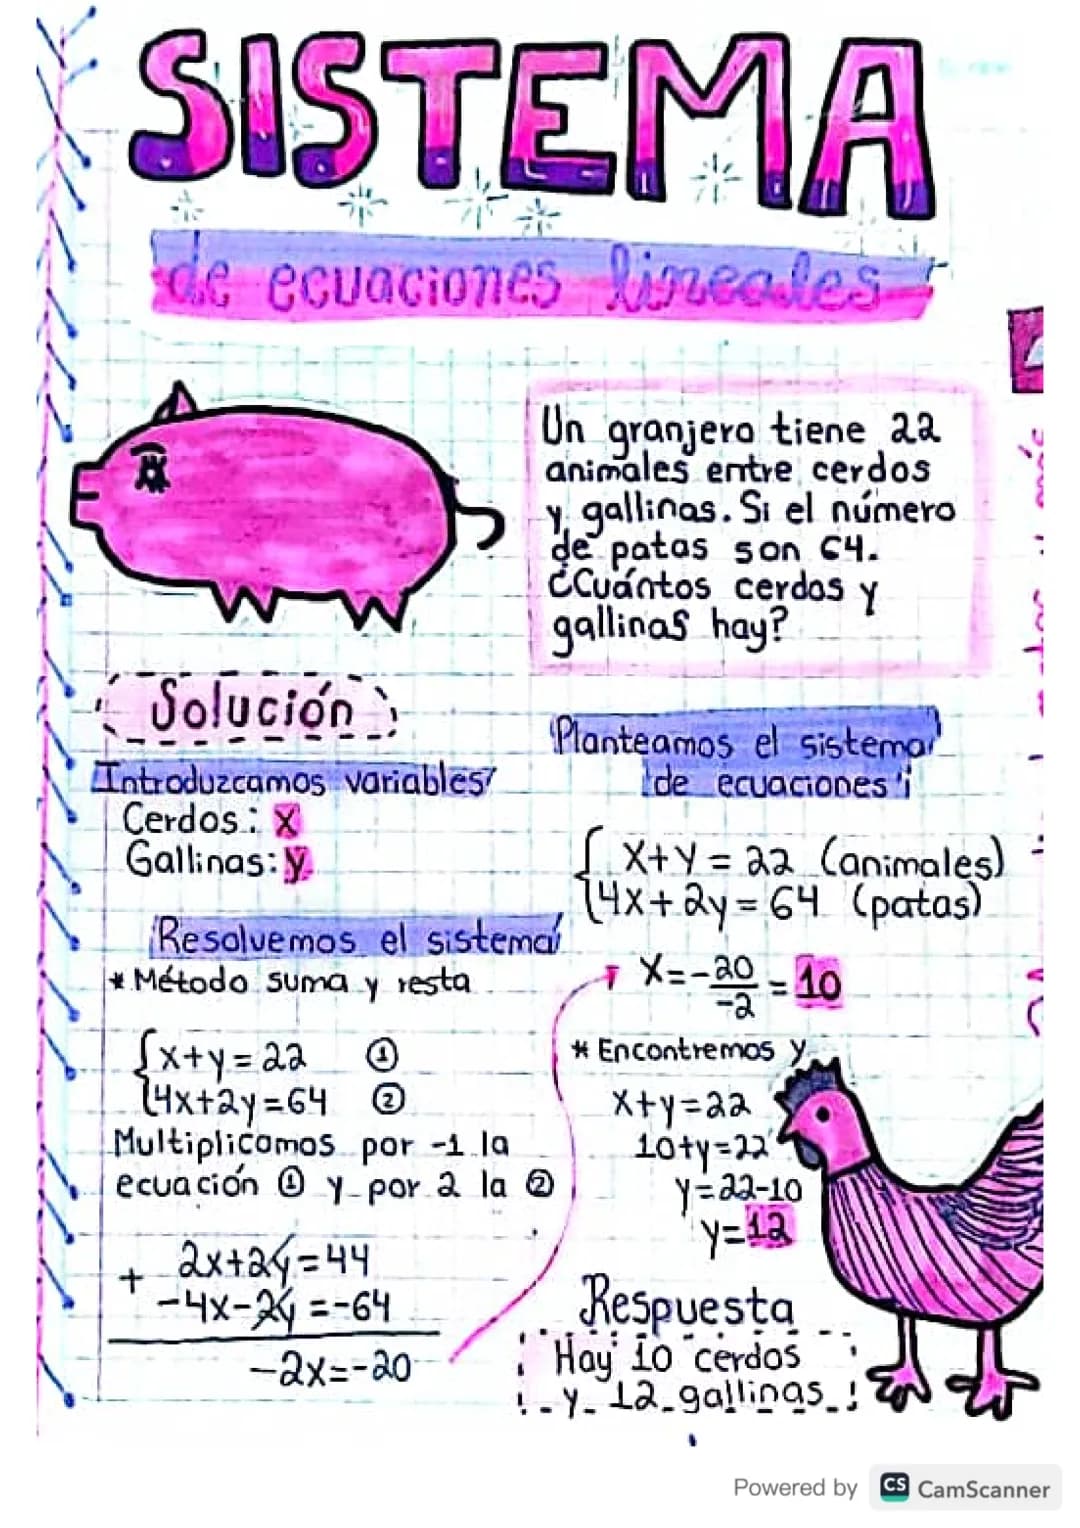 SISTEMA
de ecuaciones lineales
Un granjero tiene 22
animales entre cerdos
y gallinas. Si el número
de patas son 64.
¿Cuántos cerdos y
gallinas hay?
Solución
Introduzcamos variables
Cerdos: x
Gallinas: y
Resolvemos el sistema
* Método suma y resta
x+y=22 ①
4x+2y=64 ②
Multiplicamos por -1 la
ecuación ① y por 2 la ②
2x+2y=44
+
-4x-2y=-64
-2x=-20
Planteamos el sistema
de ecuaciones
x+y=22 (animales)
4x+2y=64 (patas)
x=-20/-2=10
* Encontremos y
x+y=22
10+y=22
y=22-10
y=12
Respuesta
Hay 10 cerdos
y 12 gallinas
Powered by CS CamScanner